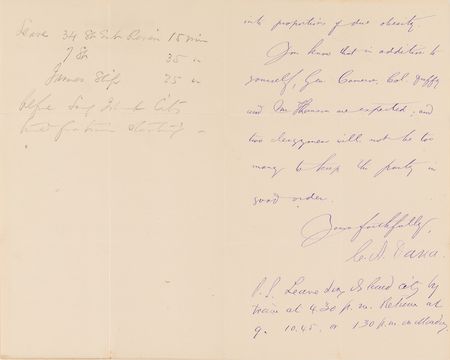 Leave 34 St East River 15 min
7 St 35 "
James Slip 35 "
before Long Isd City
time for train starting -
into proportions of due obesity.
You know that in addition to
yourself, Gen Cameron, Col. Duffy
and Mr Thomson are expected; and
two clergymen will not be too
many to keep the party in
good order.
Yours faithfully,
C. A. Dana.
P.S. Leave Long Island city by
train at 4.30 p.m. Return at
9. 10.45. or 1.30 p.m. on Monday.